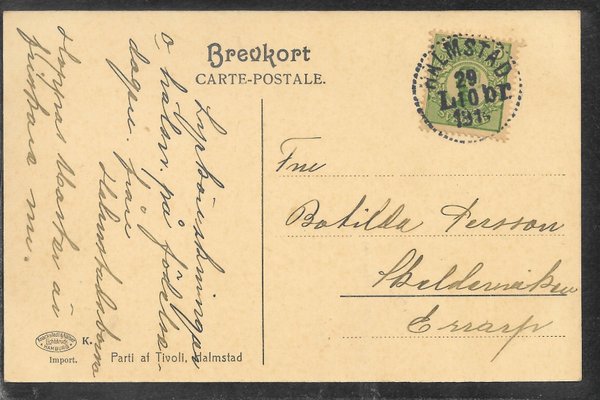 Brevkort
CARTE-POSTALE.
HALMSTAD
29
L 10 br.
191
Lyckönskningar
o hälsn. på födelse-
dagen från
Halmstadsborna
Hoppas Moster är
friskare nu.
Frne
Botilda Persson
Errarp
K.
Import.
HAMBURG
Parti af Tivoli, Halmstad